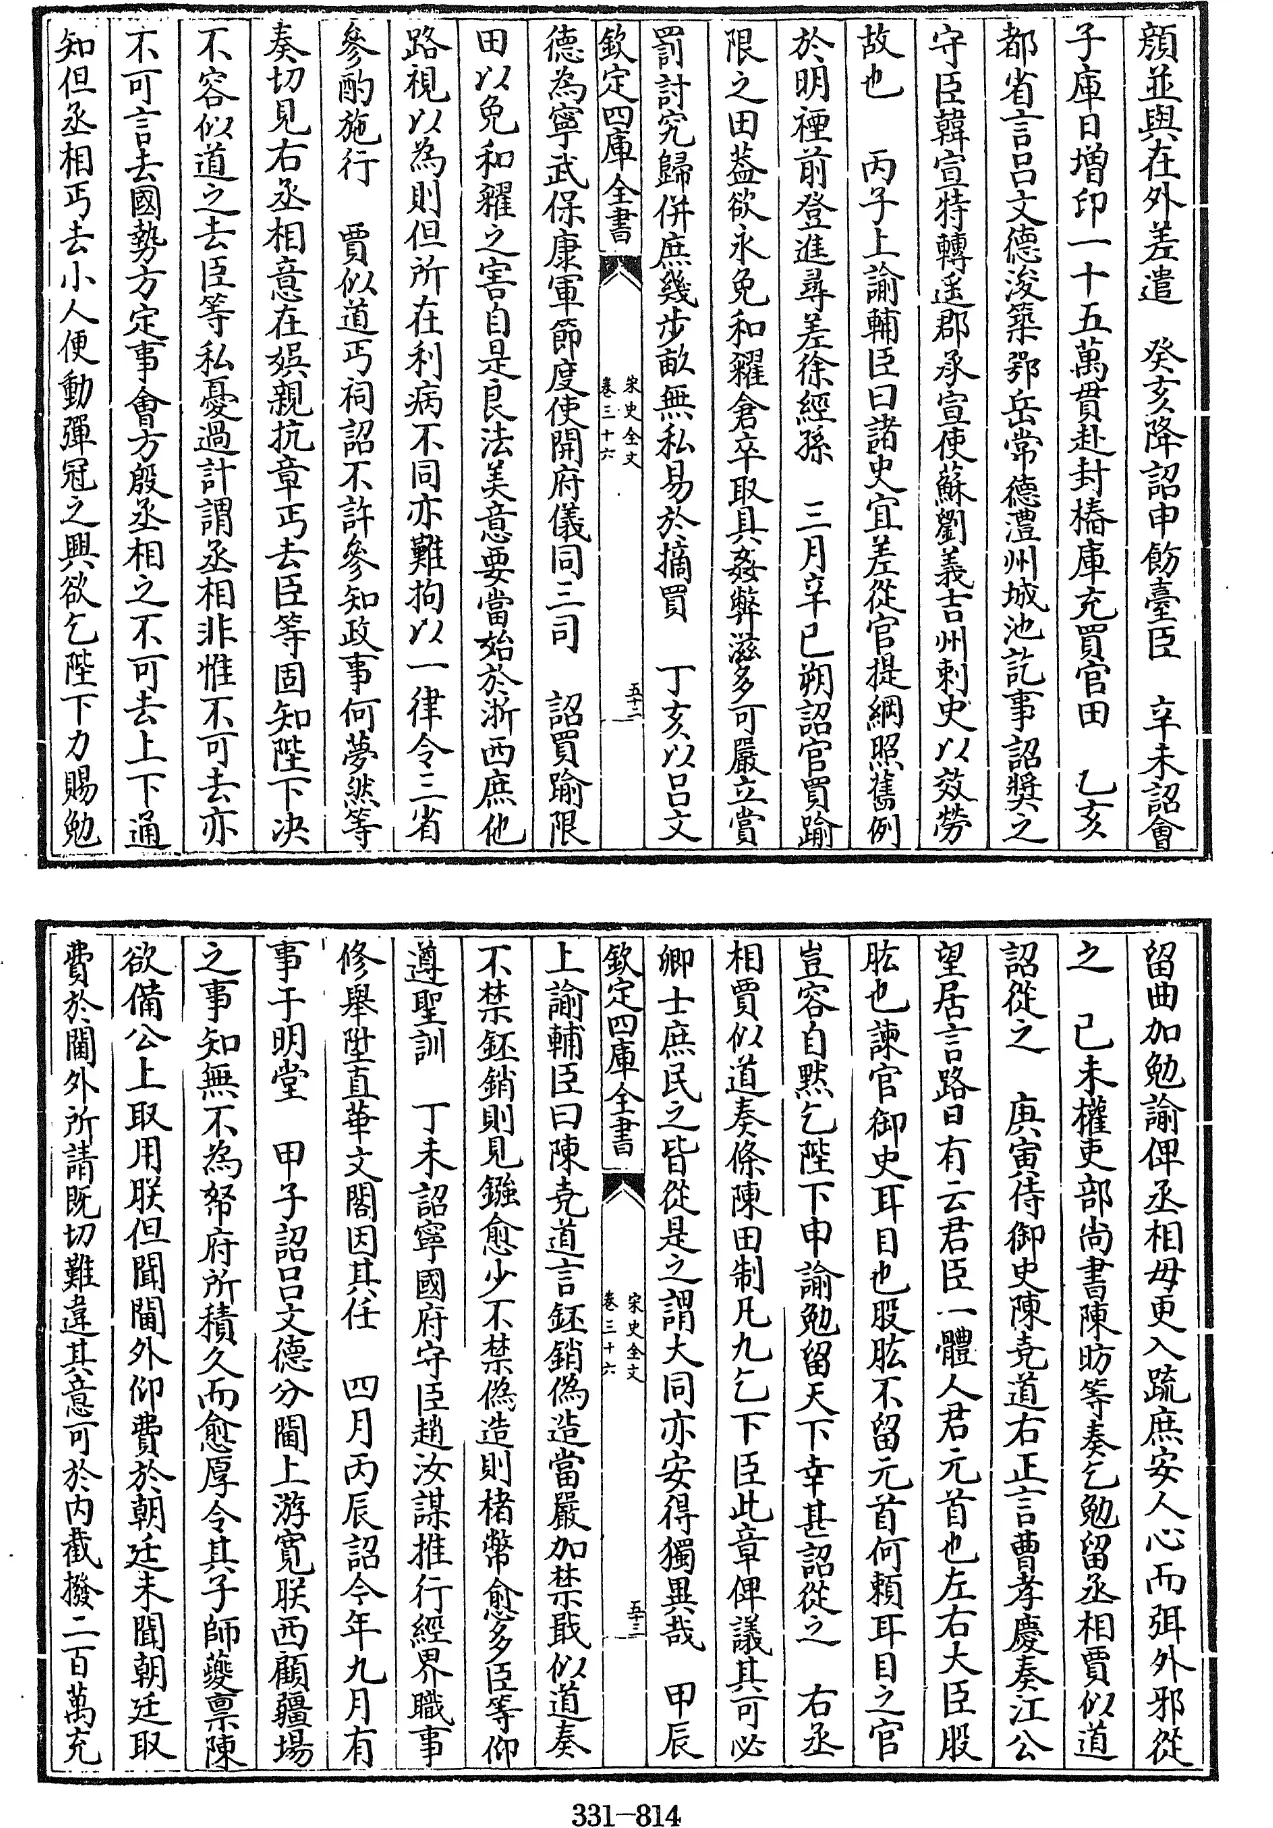 顔並與在外差遣　癸亥降詔申飭臺臣　辛未詔會
子庫日增印一十五萬貫赴封樁庫充買官田　乙亥
都省言呂文德浚築鄂岳常德澧州城池訖事詔奬之
守臣韓宣特轉遥郡承宣使蘇劉義吉州刺史以效勞
故也　丙子上諭輔臣曰諸史宜差從官提綱照舊例
於明禋前登進尋差徐經孫　三月辛巳朔詔官買踰
限之田葢欲永免和糴倉卒取具姦弊滋多可嚴立賞
罰討究歸併庶幾步畝無私易於摘買　丁亥以呂文
欽定四庫全書
宋史全文
卷三十六
五十二
德為寧武保康軍節度使開府儀同三司　詔買踰限
田以免和糴之害自是良法美意要當始於浙西庶他
路視以為則但所在利病不同亦難拘以一律令三省
參酌施行　賈似道丐祠詔不許參知政事何夢然等
奏切見右丞相意在娯親抗章丐去臣等固知陛下决
不容似道之去臣等私憂過計謂丞相非惟不可去亦
不可言去國勢方定事㑹方殷丞相之不可去上下通
知但丞相丐去小人便動彈冠之興欲乞陛下力賜勉
留曲加勉諭俾丞相毋更入疏庶安人心而弭外邪從
之　己未權吏部尚書陳昉等奏乞勉留丞相賈似道
詔從之　庚寅侍御史陳堯道右正言曹孝慶奏江公
望居言路日有云君臣一體人君元首也左右大臣股
肱也諫官御史耳目也股肱不留元首何頼耳目之官
豈容自默乞陛下申諭勉留天下幸甚詔從之　右丞
相賈似道奏條陳田制凡九乞下臣此章俾議其可必
卿士庶民之皆從是之謂大同亦安得獨異哉　甲辰
欽定四庫全書
宋史全文
卷三十六
五十三
上諭輔臣曰陳堯道言鈺銷偽造當嚴加禁戢似道奏
不禁鈺銷則見鏹愈少不禁偽造則楮幣愈多臣等仰
遵聖訓　丁未詔寧國府守臣趙汝謀推行經界職事
修舉陞直華文閣因其任　四月丙辰詔今年九月有
事于明堂　甲子詔呂文德分閫上游寛朕西顧疆場
之事知無不為帑府所積久而愈厚令其子師夔禀陳
欲備公上取用朕但聞閫外仰費於朝廷未聞朝廷取
費於閫外所請既切難違其意可於内截撥二百萬充
331-814